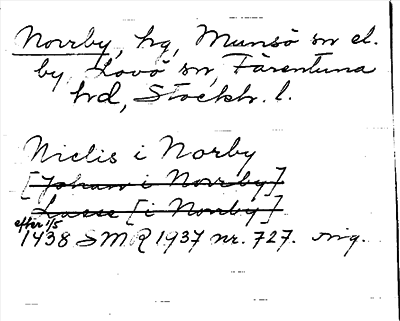 Norrby, hg, Munsö sn el.
by, Lovö sn, Färentuna
hd, Stockh. l.
Niclis i Norby
[Johan i Norrby]
Lasse [i Norrby]
efter 1/5
1438 SMR 1937 nr. 727. orig.